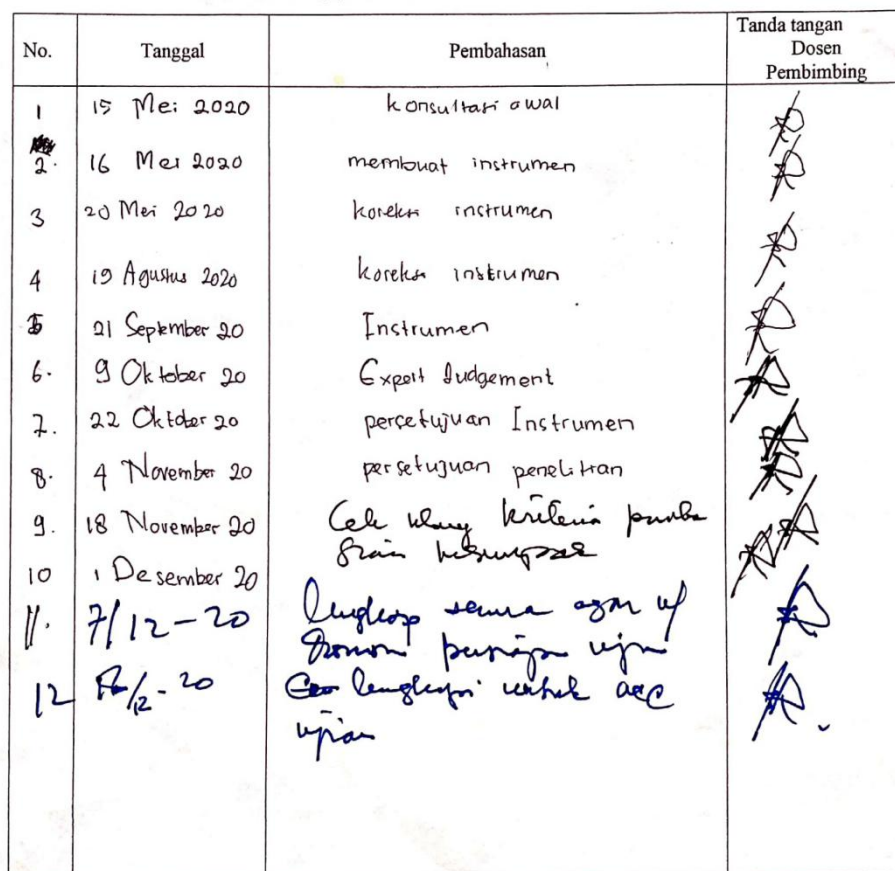 No. Tanggal Pembahasan Tanda tangan
Dosen
Pembimbing
1 15 Mei 2020 konsultasi awal
2. 16 Mei 2020 membuat instrumen
3 20 Mei 2020 koreksi instrumen
4 19 Agustus 2020 koreksi instrumen
5 21 September 20 Instrumen
6. 9 Oktober 20 Expert Judgement
7. 22 Oktober 20 percetujuan Instrumen
8. 4 November 20 persetujuan penelitian
9. 18 November 20 Cek ulang kriteria
10 1 Desember 20
11. 7/12-20 lengkap semua
ujian
12 /12-20 lengkapi untuk acc
ujian